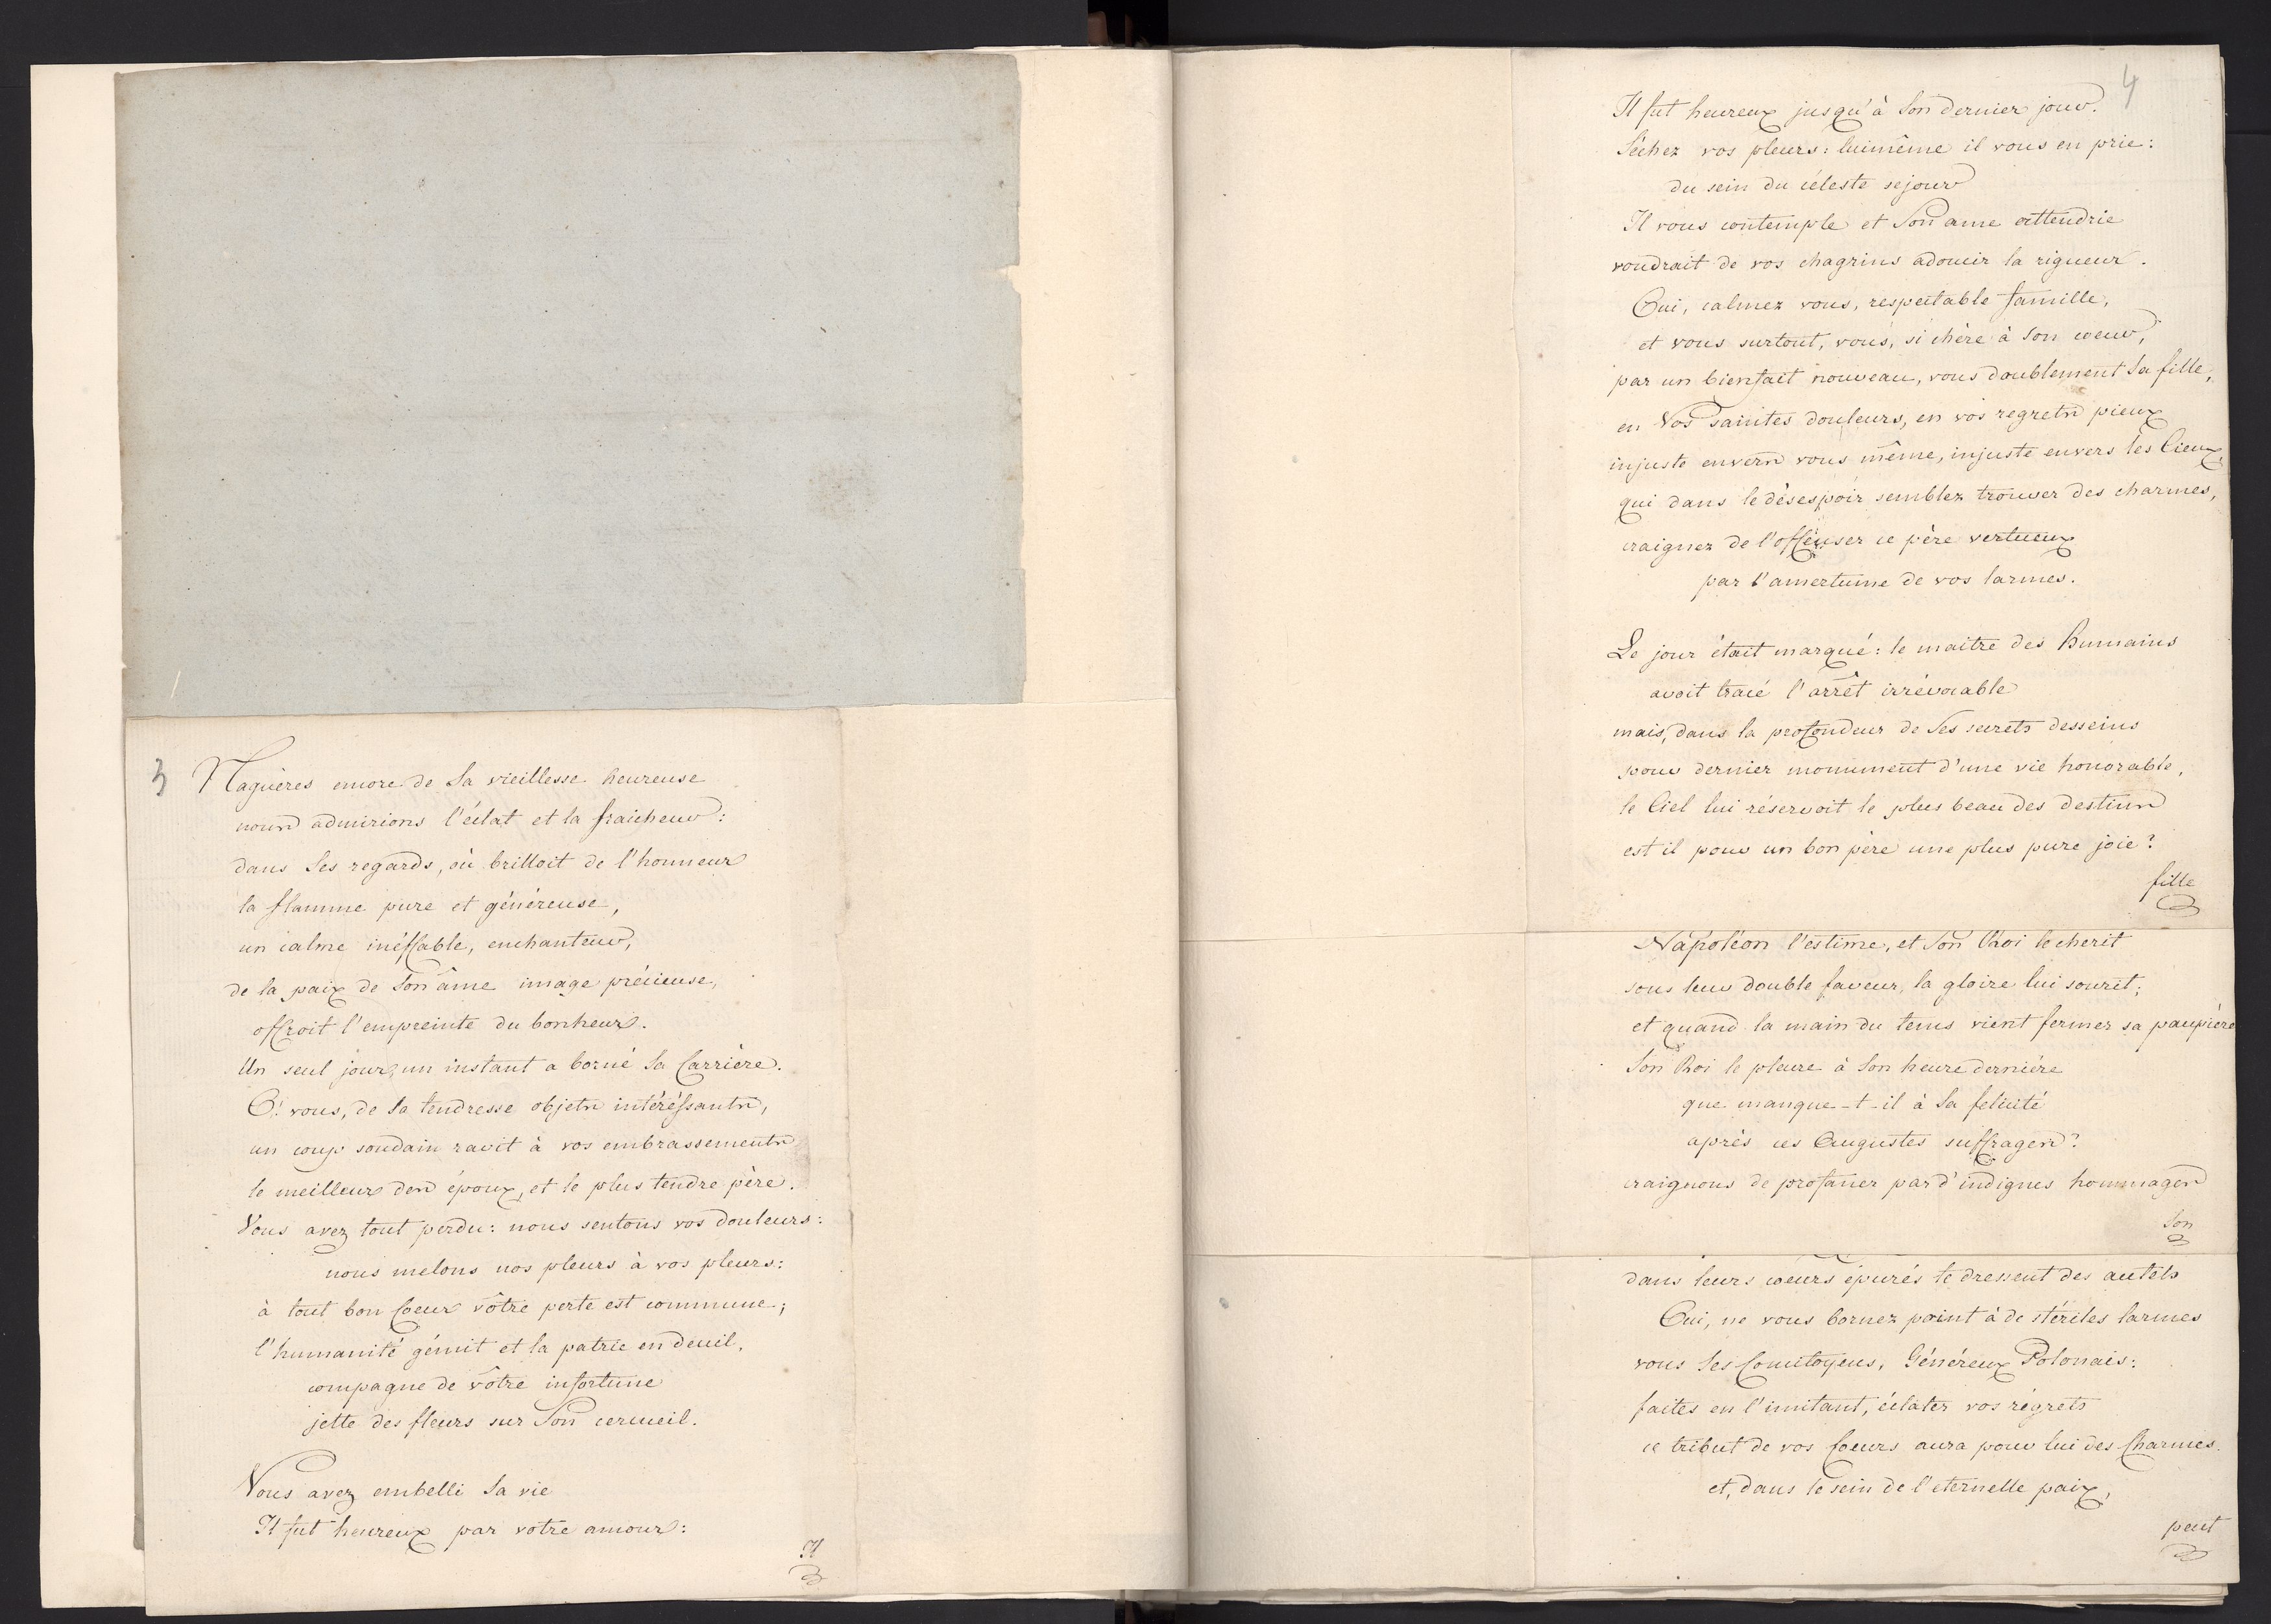 3
Naguères encore de Sa vieillesse heureuse
nous admirions l'éclat et la fraicheur:
dans Ses regards, où brilloit de l'honneur
la flamme pure et généreuse,
un calme inéffable, enchanteur,
de la paix de Son âme image précieuse,
offroit l'empreinte du bonheur.
Un seul jour, un instant a borné Sa Carrière.
O! vous, de Sa tendresse objets intéréssants,
un coup soudain ravit à vos embrassements
le meilleur des époux, et le plus tendre père.
Vous avez tout perdu: nous sentons vos douleurs:
nous melons nos pleurs à vos pleurs:
à tout bon Coeur vôtre perte est commune;
l'humanité gémit et la patrie en deuil,
compagne de vôtre infortune
jette des fleurs sur Son cercueil.
Vous avez embelli Sa vie
Il fut heureux par votre amour:
Il
4
Il fut heureux jusqu'à Son dernier jour.
Séchez vos pleurs: luimême il vous en prie:
du sein du céleste sejour
Il vous contemple et Son ame attendrie
voudrait de vos chagrins adoucir la rigueur.
Oui, calmez vous, respectable famille,
et vous surtout, vous, si chère à Son coeur,
par un bienfait nouveau, vous doublement Sa fille,
en Vos saintes douleurs, en vos regrets pieux
injuste envers vous même, injuste envers les Cieux,
qui dans le désespoir semblez trouver des charmes,
craignez de l'offenser ce père vertueux
par l'amertume de vos larmes.
Le jour était marqué: le maitre des Humains
avoit tracé l'arrêt irrévocable
mais, dans la profondeur de Ses secrets desseins
pour dernier monument d'une vie honorable,
le Ciel lui réservoit le plus beau des destins
est il pour un bon père une plus pure joie?
fille
Napoléon l'estime, et Son Roi le cherit
sous leur double faveur, la gloire lui sourit;
et quand la main du tems vient fermer sa paupière
Son Roi le pleure à Son heure dernière
que manque-t-il à Sa felicité
après ces Augustes suffrages?
craignons de profaner par d'indignes hommages
Son
dans leurs coeurs épurés te dressent des autels
Oui, ne vous bornez point à de stériles larmes
vous Ses Concitoyens, Généreux Polonais:
faites en l'imitant, éclater vos régrets
ce tribut de vos Coeurs aura pour lui des Charmes.
et, dans le sein de l'eternelle paix,
peut